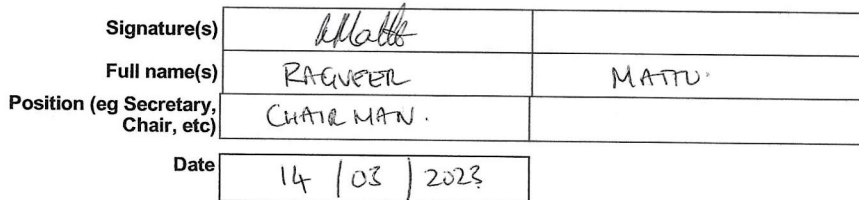 Signature(s)
Full name(s) RAGVEER MATTU.
Position (eg Secretary, Chair, etc) CHAIRMAN.
Date 14 / 03 / 2023